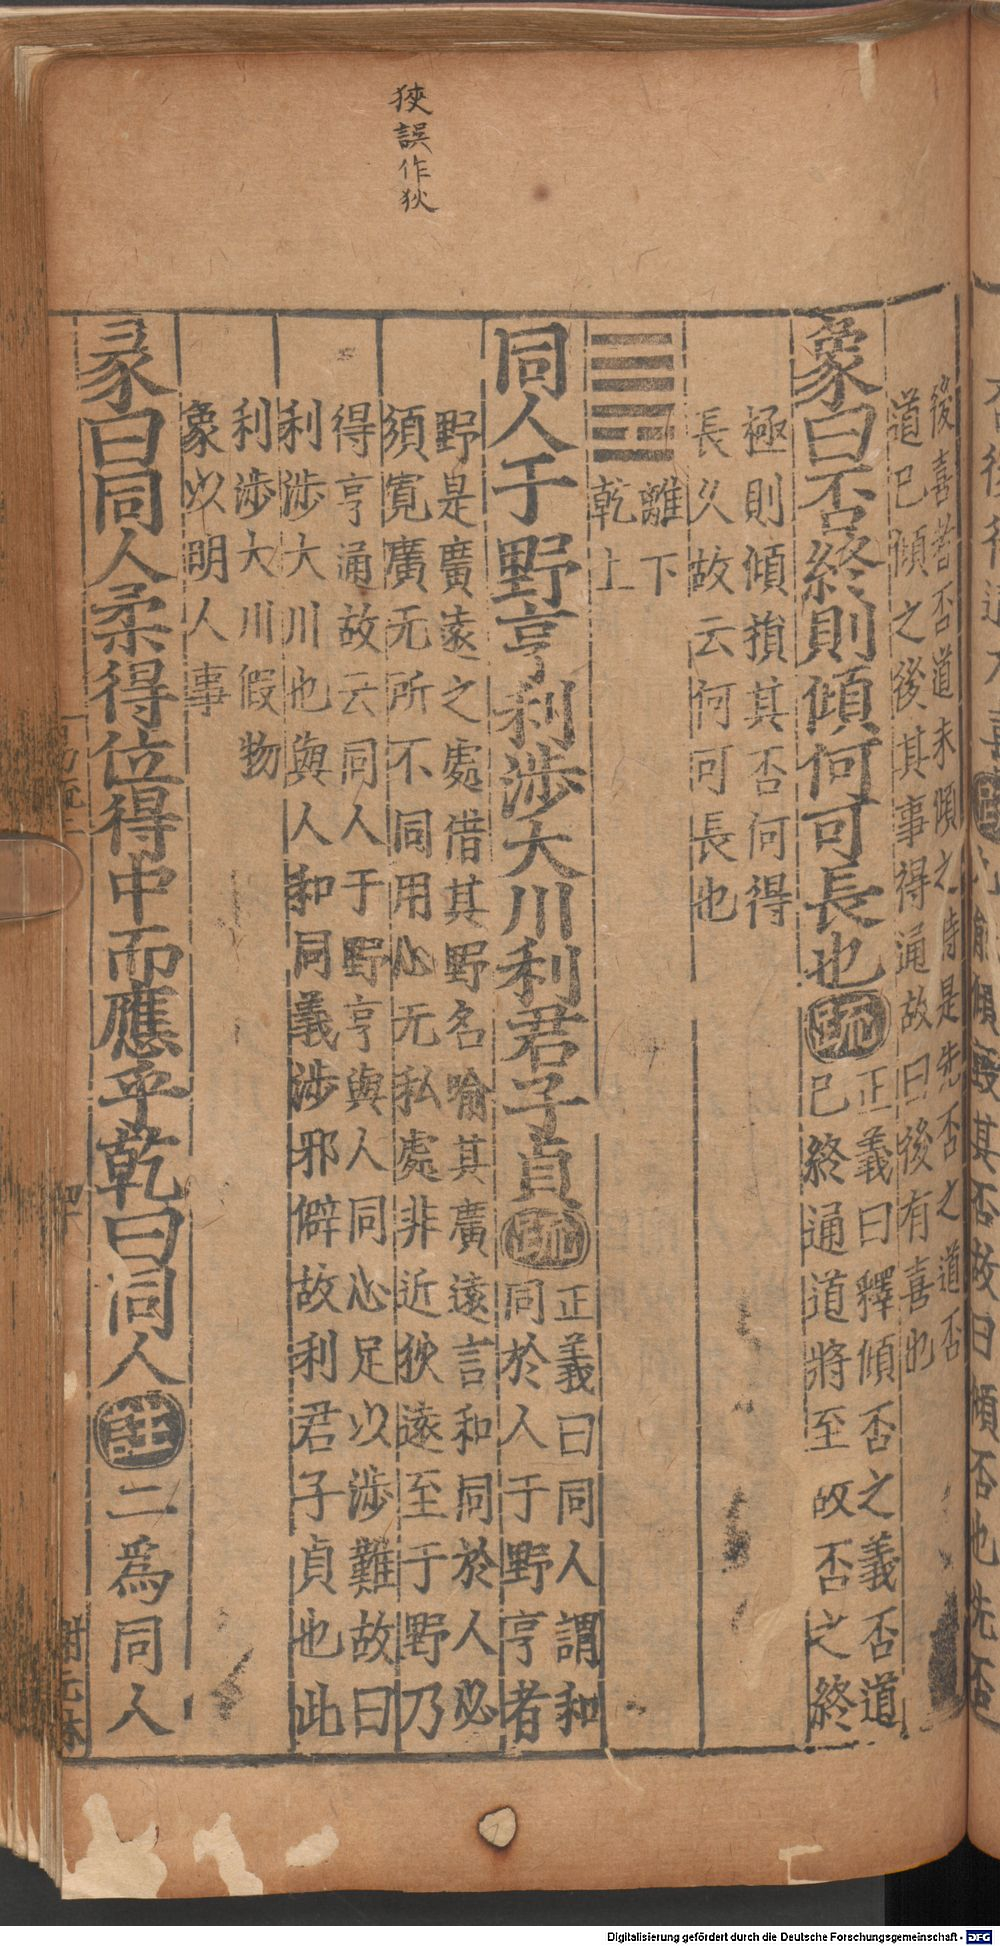 狹誤作狄
喻傾毀其否故曰傾否也先否
後喜者否道未傾之時是先否之道否
道已傾之後其事得通故曰後有喜也
象曰否終則傾何可長也疏
正義曰釋傾否之義否道
已終通道將至故否之終
極則傾損其否何得
長久故云何可長也
䷌離下
乾上
同人于野亨利涉大川利君子貞疏
正義曰同人謂和
同於人于野亨者
野是廣遠之處借其野名喻其廣遠言和同於人必
須寬廣无所不同用心无私處非近狄遠至于野乃
得亨通故云同人于野亨與人同心足以涉難故曰
利涉大川也與人和同義涉邪僻故利君子貞也此
利涉大川假物
象以明人事
彖曰同人柔得位得中而應乎乾曰同人註二為同人
Digitalisierung gefördert durch die Deutsche Forschungsgemeinschaft - DFG